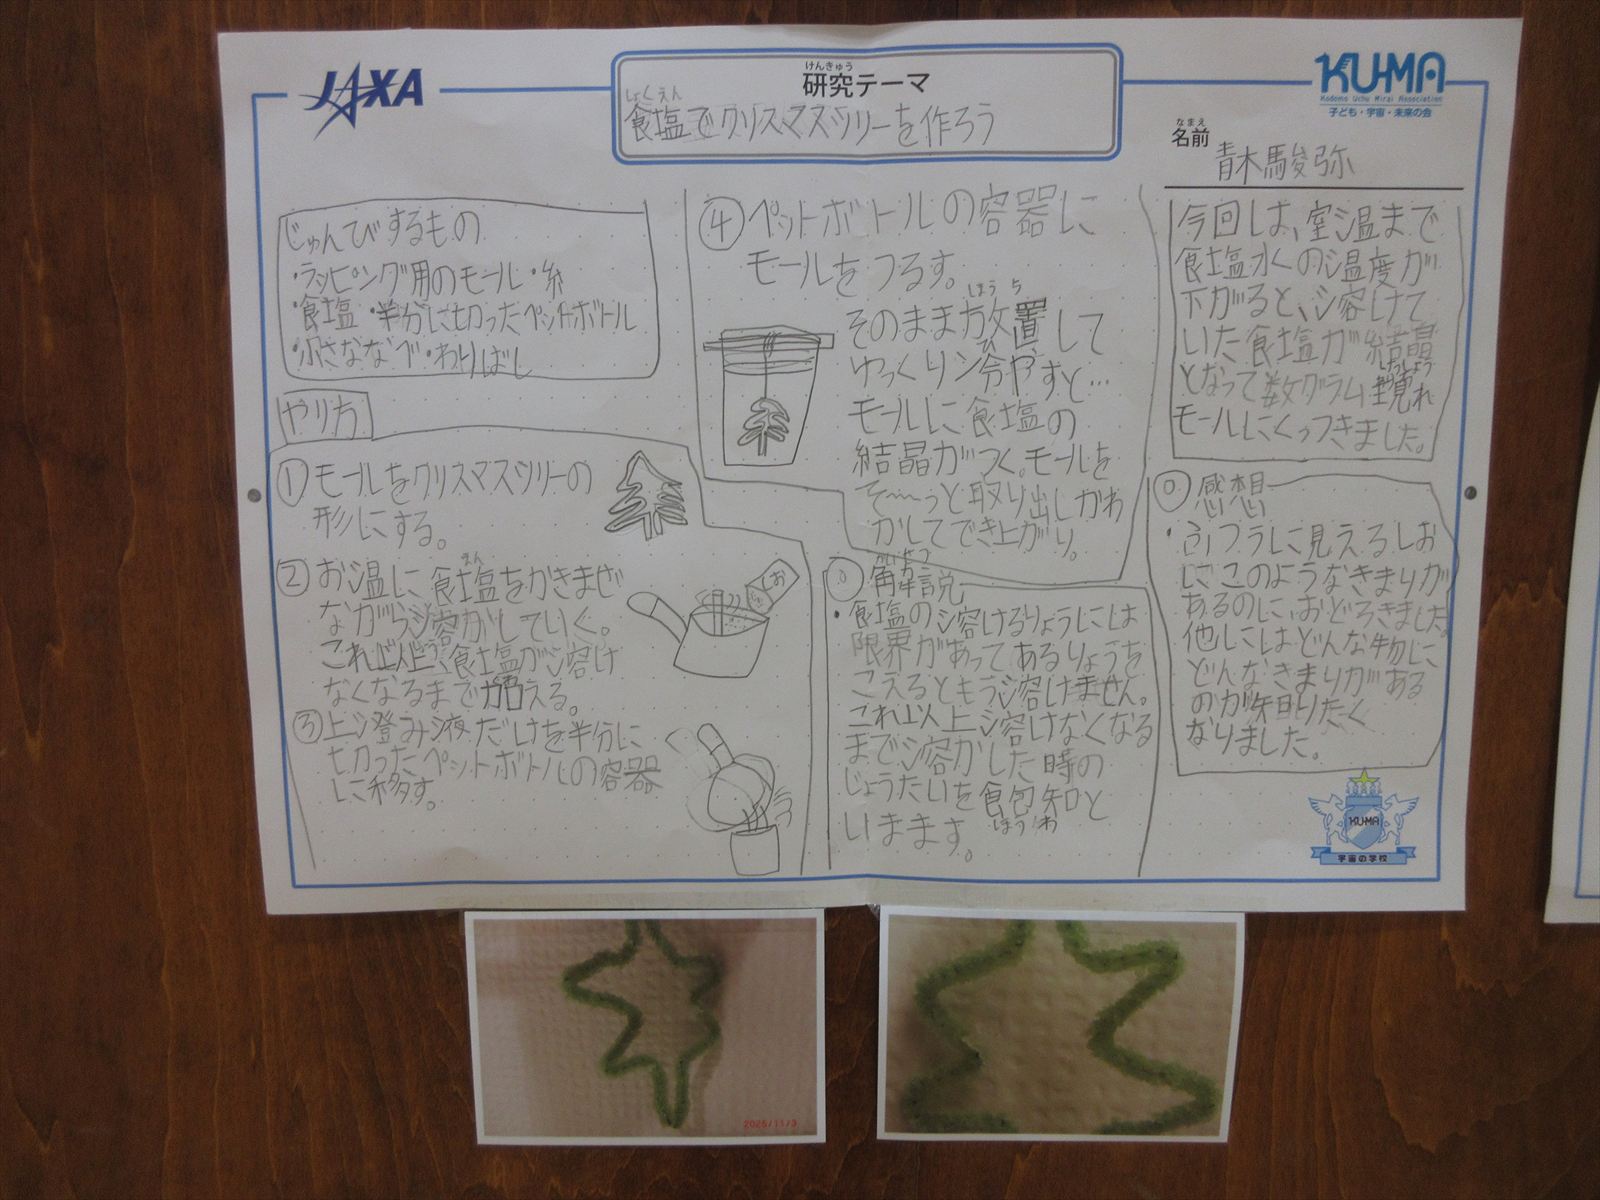 JAXA
けんきゅう
研究テーマ
しょくえん
食塩でクリスマスツリーを作ろう
KU-MA
Kodomo Uchu Mirai Association
子ども・宇宙・未来の会
なまえ
名前
青木駿弥
じゅんびするもの
・ラッピング用のモール・糸
・食塩・半分に切ったペットボトル
・小さななべ・わりばし
やり方
①モールをクリスマスツリーの
形にする。
②お温に食塩をかきまぜ
えん
ながら溶かしていく。
これ以上、食塩が溶け
なくなるまで加える。
③上澄み液だけを半分に
切ったペットボトルの容器
に移す。
しお
④ペットボトルの容器に
モールをつるす。
ほうち
そのまま放置して
ひ
ゆっくり冷やすと…
モールに食塩の
結晶がつく。モールを
そ〜っと取り出しかわ
かしてできあがり。
解説
・食塩の溶けるりょうには
限界があってあるりょうを
こえるともう溶けません。
これ以上溶けなくなる
まで溶かした時の
じょうたいを飽和と
ほうわ
いいます。
今回は、室温まで
食塩水の温度が
下がると、溶けて
いた食塩が結晶
けっしょう
となって数グラム現れ
モールにくっつきました。
感想
・ふつうに見えるしお
にこのようなきまりが
あるのに、おどろきました。
他にはどんな物に
どんなきまりがある
のか知りたく
なりました。
KU-MA
宇宙の学校
2025/11/3